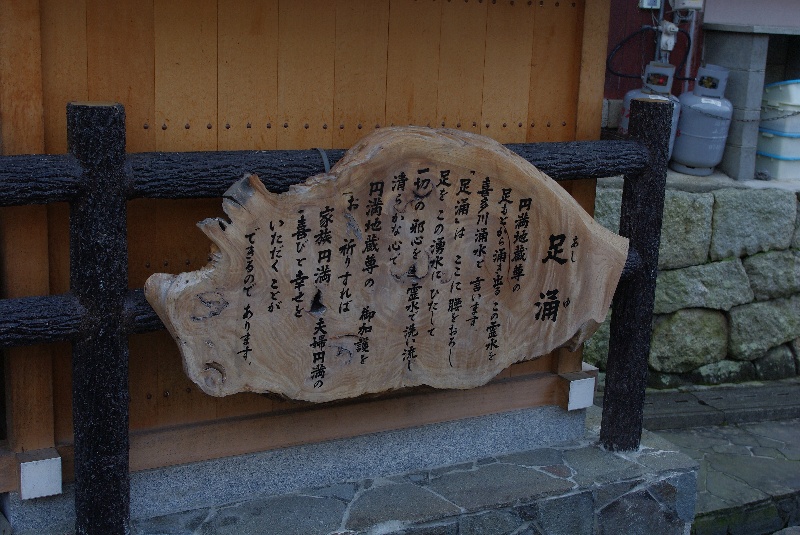 足涌
あしゆ
円満地蔵尊の
足もとから涌き出るこの霊水を
喜多川涌水と言います
「足涌」はここに腰をおろし
足をこの湧水にひたして
一切の邪心を霊水で洗い流し
清らかな心で
円満地蔵尊の御加護を
お祈りすれば
家族円満夫婦円満の
喜びと幸せを
いただくことが
できるのであります。